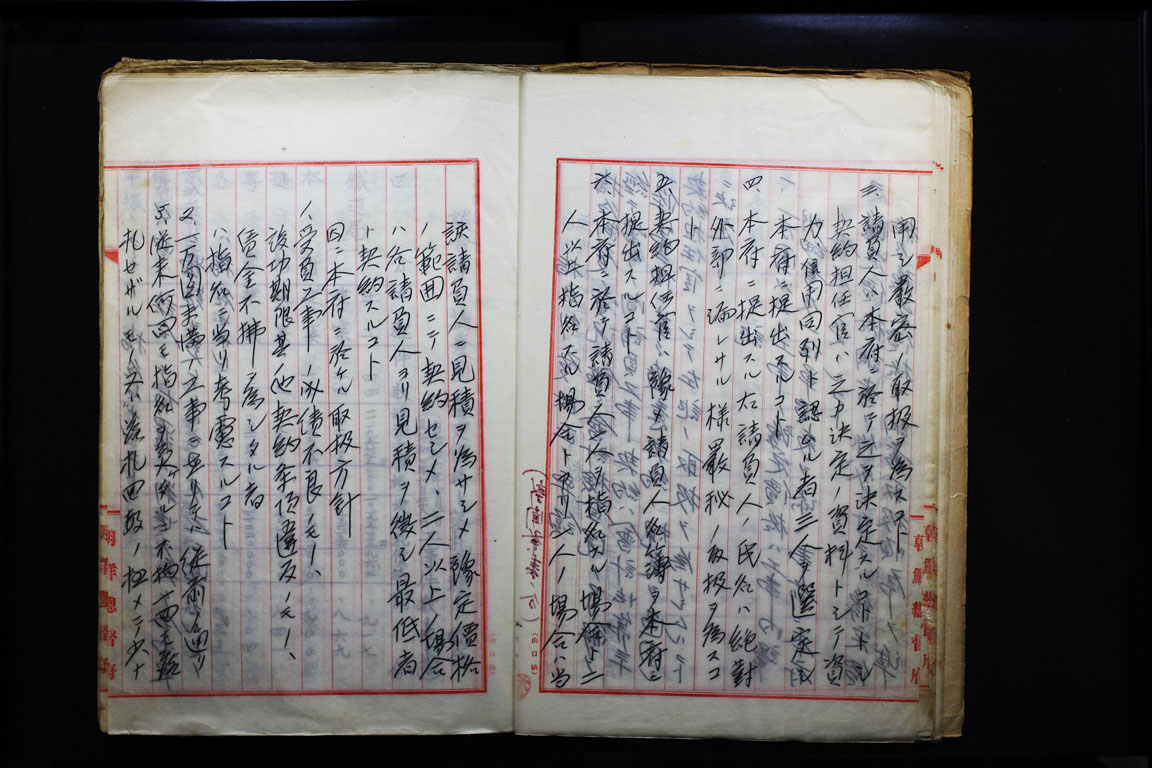 用シ厳密ノ取扱ヲ為スコト
三、請負人ハ本府ニ於テ之ヲ決定スルコトトシ
契約担任官ハ之カ決定ノ資料トシテ資
力信用同列ト認ムル者三人ヲ選定シ
本府ニ提出スルコト
四、本府ニ提出スル右請負人ノ氏名ハ絶対
外部ニ漏レサル様厳秘ノ取扱ヲ為スコト
五、契約担任官ハ予メ請負人名簿ヲ本府ニ
提出スルコト
六、本府ニ於テ請負人一人ヲ指名スル場合ト二
人以上指名スル場合トアリ一人ノ場合ハ当
該請負人ニ見積ヲ為サシメ豫定價格
ノ範囲ニテ契約セシメ、二人以上ノ場合
ハ各請負人ヨリ見積ヲ徴シ最低者
ト契約スルコト
四、本府ニ於ケル取扱方針
1、受負工事ノ成績不良ノモノ、
竣功期限其ノ他契約条項違反ノモノ、
賃金不拂ヲ為シタル者
ハ指名ニ当リ考慮スルコト
2、一万圓未満ノ工事
従前ノ通リ
3、従来何回モ指名
不拘一回モ落
札セザルモノ
落札回数ノ極メテ少ナ
朝鮮總督府
朝鮮總督府